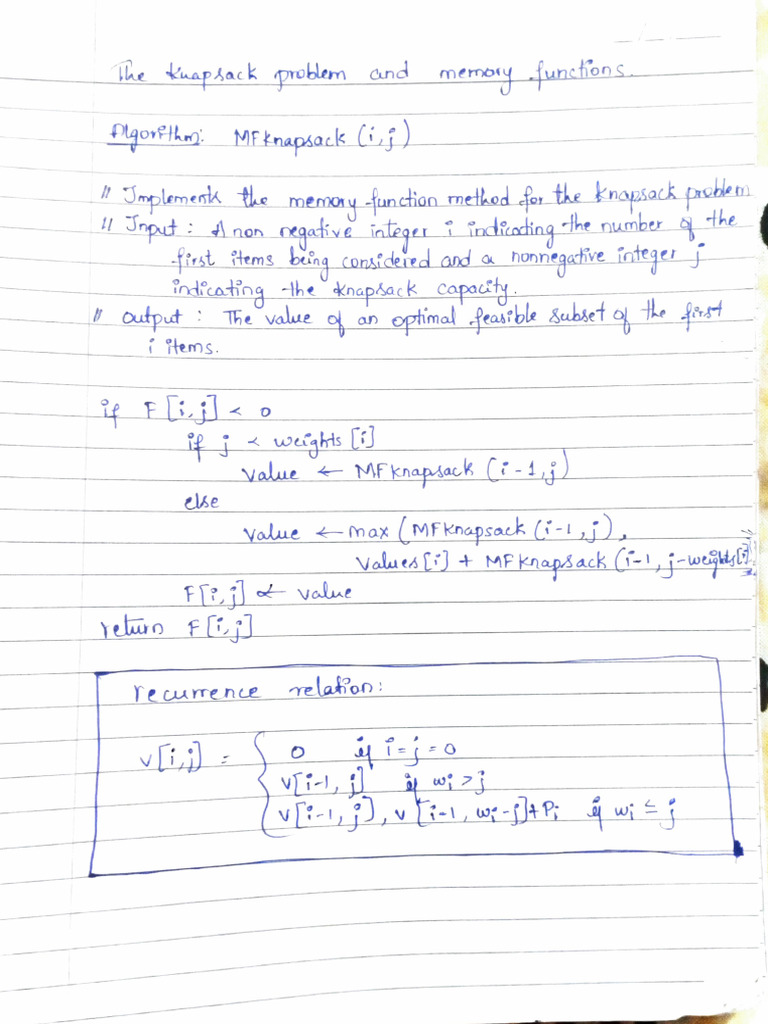 The knapsack problem and memory functions.
Algorithm: MFknapsack (i,j)
// Implements the memory function method for the knapsack problem
// Input : A non negative integer i indicating the number of the
first items being considered and a nonnegative integer j
indicating the knapsack capacity.
// output : The value of an optimal feasible subset of the first
i items.
if F[i,j] < 0
if j < weights [i]
value ← MFknapsack (i-1,j)
else
value ← max (MFknapsack (i-1,j),
values[i] + MFknapsack (i-1, j-weights[i]
F[i,j] ← value
return F[i,j]
recurrence relation:
v[i,j] = { 0 if i=j=0
v[i-1, j] if wi>j
v[i-1, j], v[i-1, wi-j]+Pi if wi ≤ j